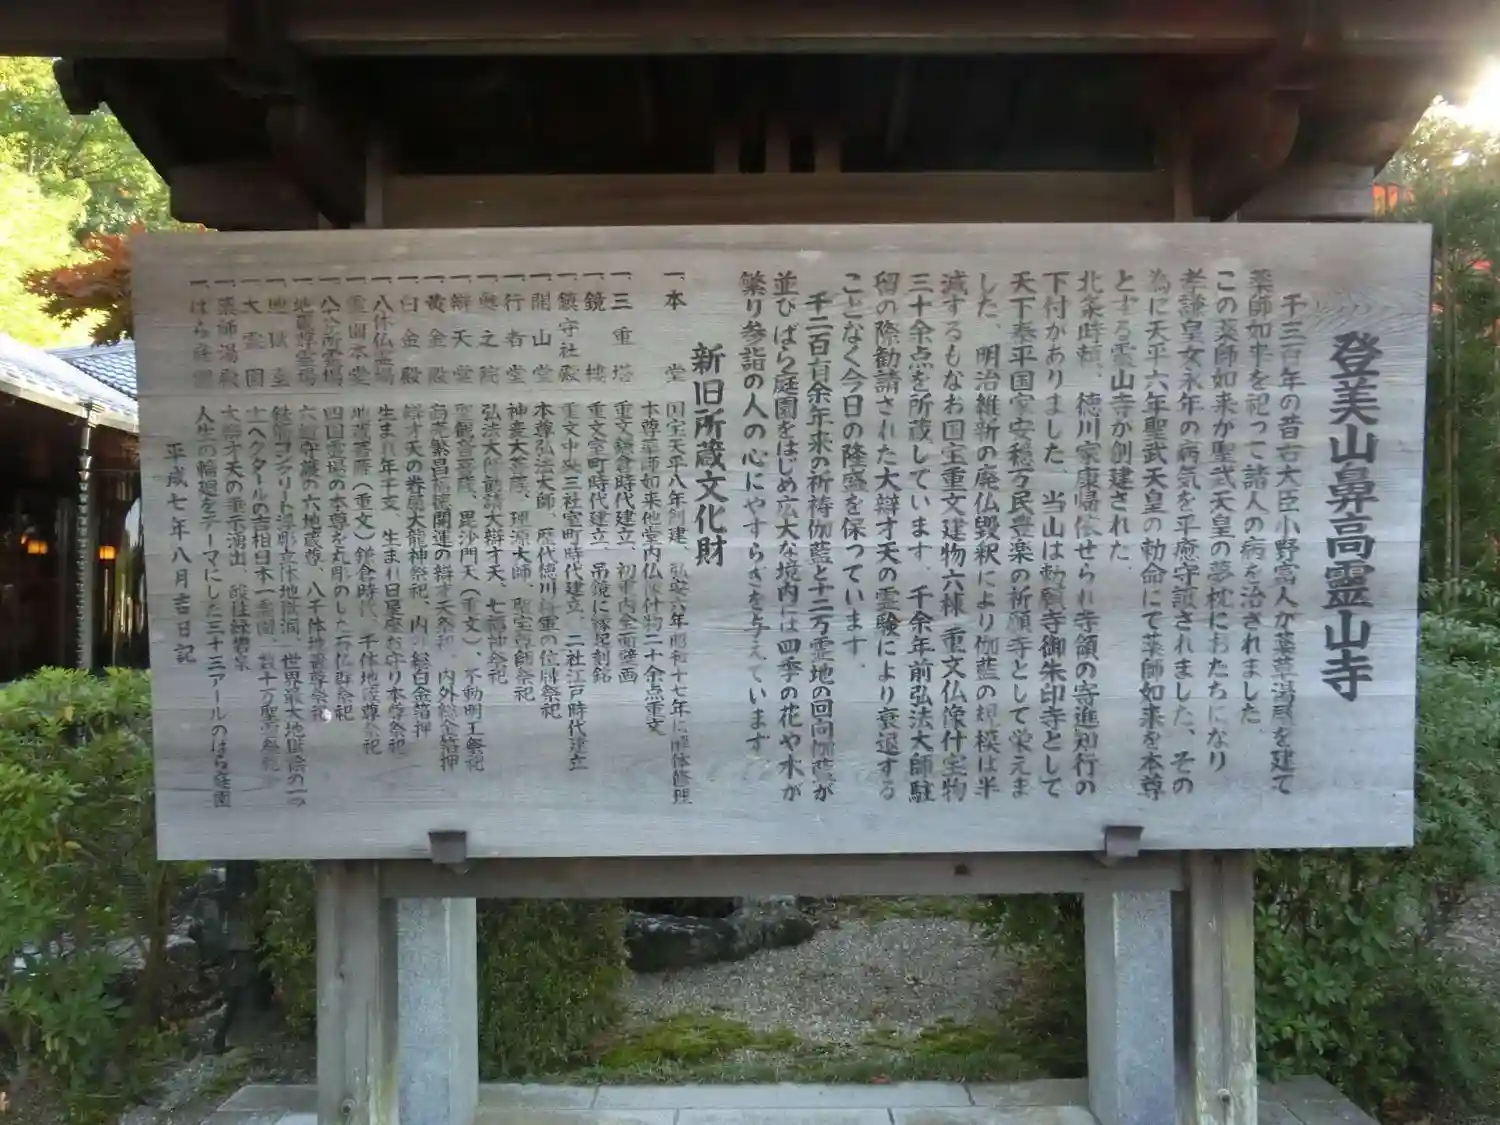 登美山鼻高霊山寺
千三百年の昔右大臣小野富人が薬草湯屋を建て
薬師如来を祀って諸人の病を治されました。
この薬師如来が聖武天皇の夢枕におたちになり
孝謙皇女永年の病気を平癒守護されました、その
為に天平六年聖武天皇の勅命にて薬師如来を本尊
とする霊山寺が創建された
北条時頼、徳川家康帰依せられ寺領の寄進知行の
下付がありました、当山は勅願寺御朱印寺として
天下泰平国家安穏万民豊楽の祈願寺として栄えま
した、明治維新の廃仏毀釈により伽藍の規模は半
減するもなお国宝重文建物六棟 重文仏像什宝物
三十余点を所蔵しています、千余年前弘法大師駐
留の際勧請された大辯才天の霊験により衰退する
ことなく今日の隆盛を保っています、
千二百有余年来の祈祷伽藍と十二万霊地の回向伽藍が
並びばら庭園をはじめ広大な境内には四季の花や水が
繁り参詣の人の心にやすらぎを与えています、
新旧所蔵文化財
一、本堂 国宝天平八年創建、弘安六年昭和十七年に解体修理
本尊薬師如来他堂内仏像什物二十余点重文
一、三重塔 重文鎌倉時代建立、初重内全面壁画
一、鐘楼 重文室町時代建立、吊鐘に縁起刻銘
一、鎮守社殿 重文中央三社室町時代建立、二社江戸時代建立
一、開山堂 本尊弘法大師、歴代徳川将軍の位牌祭祀
一、行者堂 神変大菩薩、理源大師、聖宝尊師祭祀
一、奥之院 弘法大師勧請大辯才天、七福神祭祀
一、辯天堂 聖観音菩薩、毘沙門天(重文)、不動明王祭祀
一、黄金殿 商売繁昌福徳開運の辯才天祭祀、内外総金箔押
一、白金殿 辯才天の眷属大龍神祭祀、内外総白金箔押
一、八体仏霊場 生まれ年干支、生まれ日星座お守り本尊祭祀
一、霊山本堂 地蔵菩薩(重文)鎌倉時代、千体地蔵尊祭祀
一、八ヶ所霊場 四国霊場の本尊を丸彫のした石仏群祭祀
一、地蔵尊霊場 六道守護の六地蔵尊、八千体地蔵尊祭祀
一、地獄堂 鉄筋コンクリート浮彫立体地獄洞、世界最大地獄絵の一つ
一、大霊園 十ヘクタールの吉相日本一霊園、数十万聖霊祭祀
一、薬師湯殿 大辯才天の垂示湧出、
一、ばら庭園 人生の輪廻をテーマにした三十三アールのばら庭園
平成七年八月吉日記